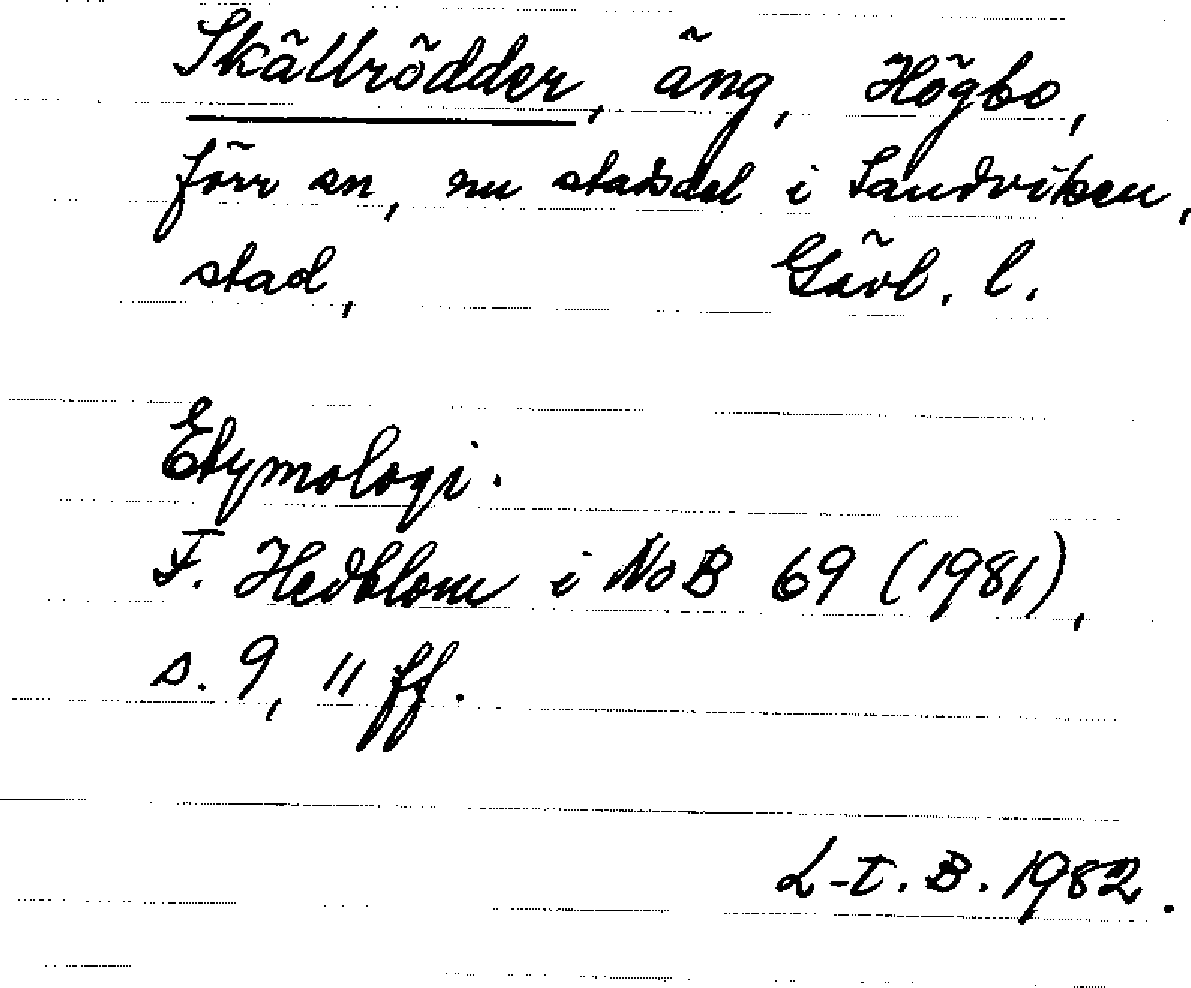 Skällrödder, äng, Högbo,
förr sn, nu stadsdel i Sandviken,
stad, Gävl. l.
Etymologi.
F. Hedblom i NoB 69 (1981),
s. 9, 11 ff.
L-t. B. 1982.